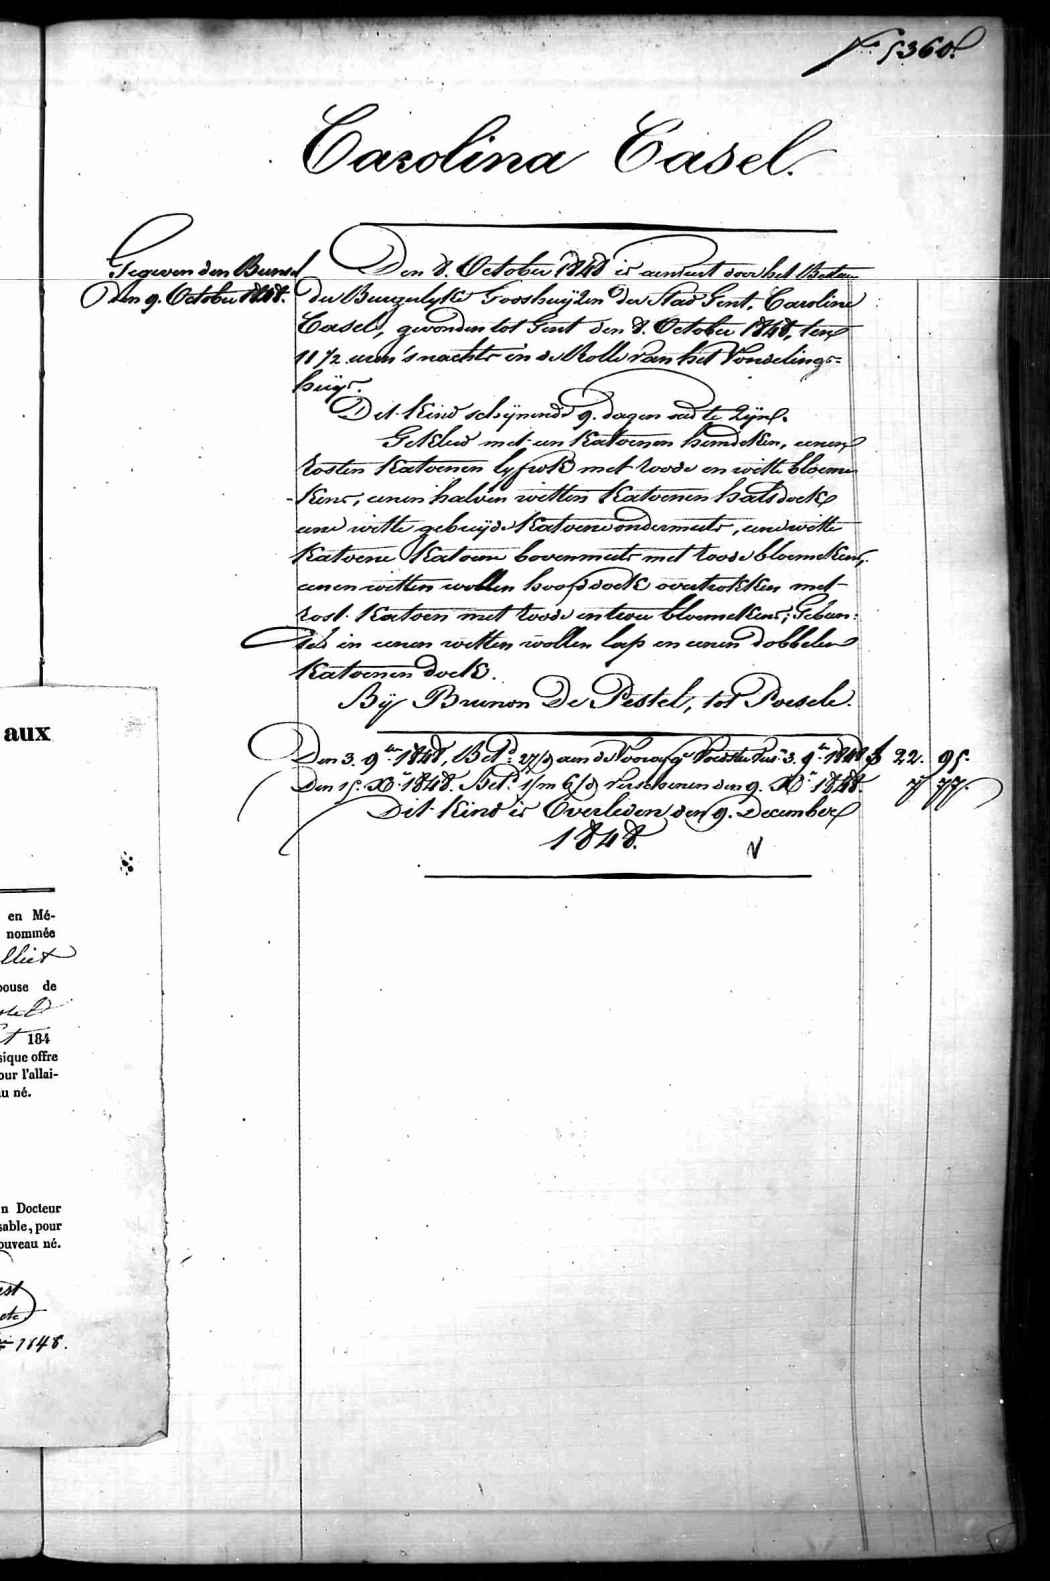 N.º 5360.
Carolina Casel.
Gegeven den Bunsel
den 9. October 1848.
Den 8. October 1848 is aenveert door het Bestuur
der Burgerlyke Godshuijzen der Stad Gent, Caroline
Casel, gevonden tot Gent den 8. October 1848, ten
11 1/2 uren 's nachts in de Rolle van het Vondelings-
huijs.
Dit kind schijnende 9. dagen oud te zijn.
Gekleed met een katoenen hemdeken, eenen
rosten katoenen lyfrok met roode en witte bloeme
-kens, eenen halven witten katoenen halsdoek
eene witte gebreijde katoene ondermuts, eene witte
katoene katoene bovenmuts met roode bloemekens,
eenen witten wollen hoofddoek overtrokken met
rost katoen met roode en bloemekens; Gebun-
seld in eenen witten wollen lap en eenen dobbelen
katoenen doek.
Bÿ Brunon De Pestel, tot Poesele.
Den 3. 9ber 1848, Bet.d 27/d aen de Voorz. Voedster 3. 9r 1848 f 22. 95.
Den 15. Xr 1848. Bet.d 1/m 6/d verschenen den 9. Xr 1848. 7 77.
Dit kind is Overleden den 9. December
1848.
aux
en Mé-
nommée
lliet
pouse de
184
sique offre
our l'allai-
u né.
n Docteur
sable, pour
ouveau né.
1848.